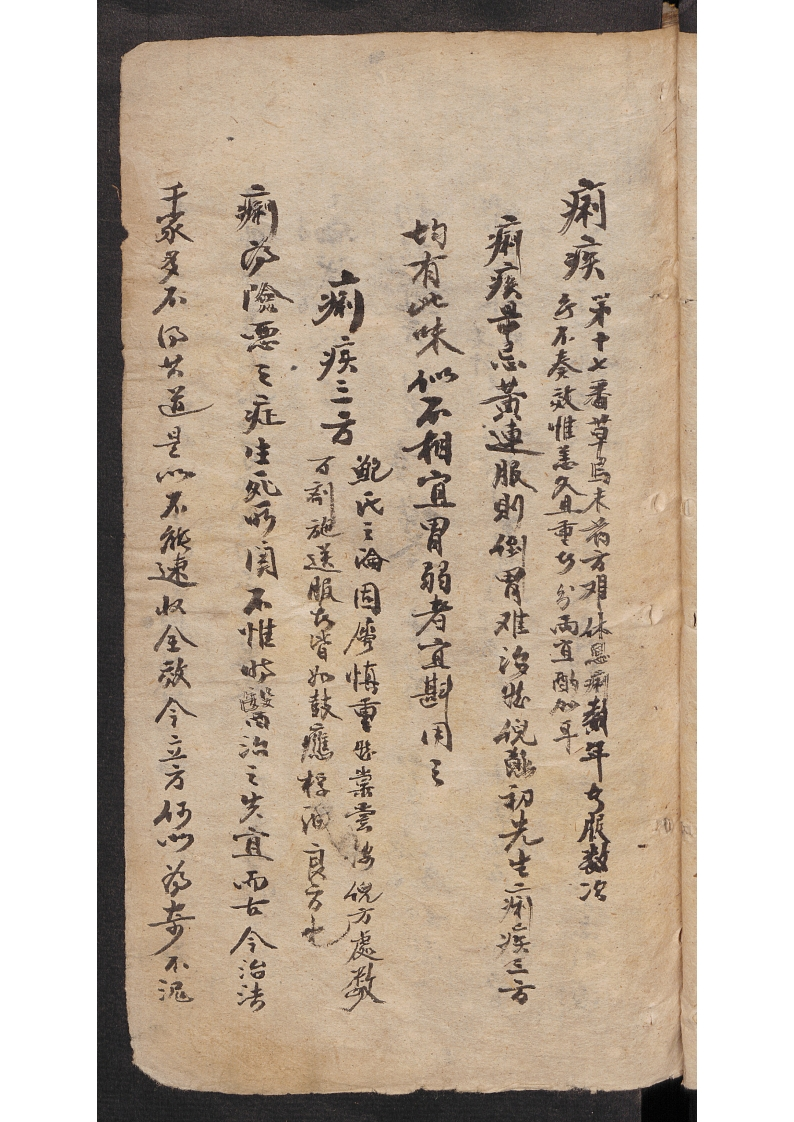 痢疾
第十七番草烏末前方难休息痢数年者服数次
無不奏效惟恙久且重者分兩宜酌加耳
痢疾最忌黃連服則倒胃难治然倪涵初先生痢疾三方
均有此味似不相宜胃弱者宜斟用之
痢疾三方
鮑氏之論固屬慎重然棠嘗按倪方處数
百劑施送服者皆如鼓應桴洵良方也
痢為險惡之症生死所関不惟時醫治之失宜而古今治法
千家多不得其道是以不能速收全效今立方何以為奇不泥